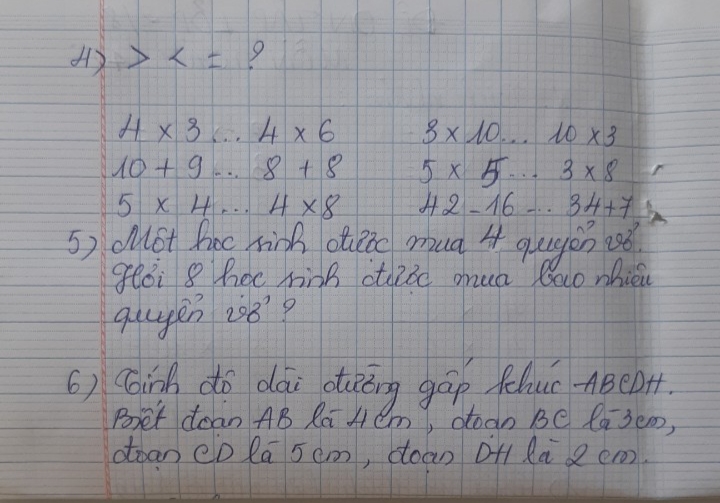 4) > < = ?
4 x 3... 4 x 6 3 x 10... 10 x 3
10 + 9... 8 + 8 5 x 5... 3 x 8
5 x 4... 4 x 8 42 - 16... 34 + 7
5) Một học sinh được mua 4 quyển vở.
Hỏi 8 học sinh được mua bao nhiêu
quyển vở?
6) Tính độ dài đường gấp khúc ABCDH.
Biết đoạn AB là 4cm, đoạn BC là 3cm,
đoạn CD là 5cm, đoạn DH là 2cm.